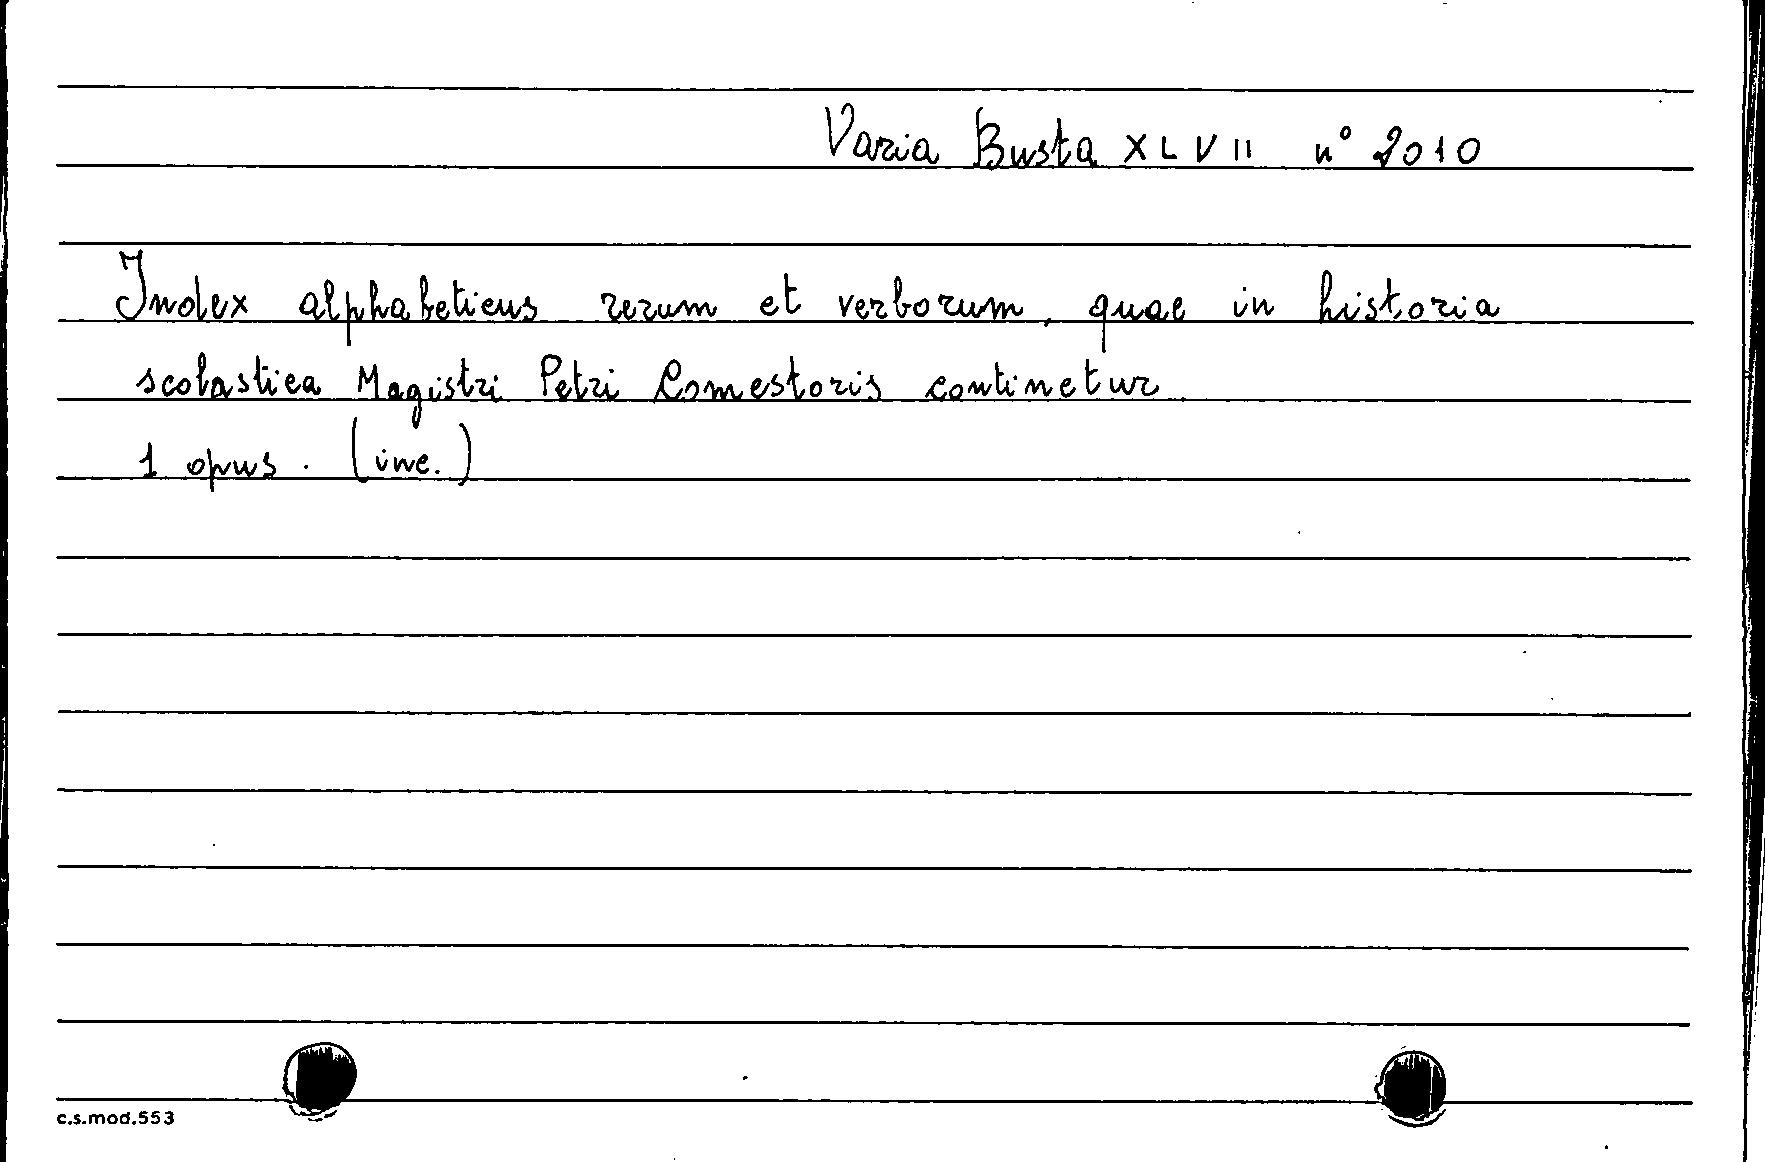 Varia Busta XLVII n° 2010
Index alphabeticus rerum et verborum, quae in historia
scolastica Magistri Petri Comestoris continetur.
1 opus. (inc.)
c.s.mod.553